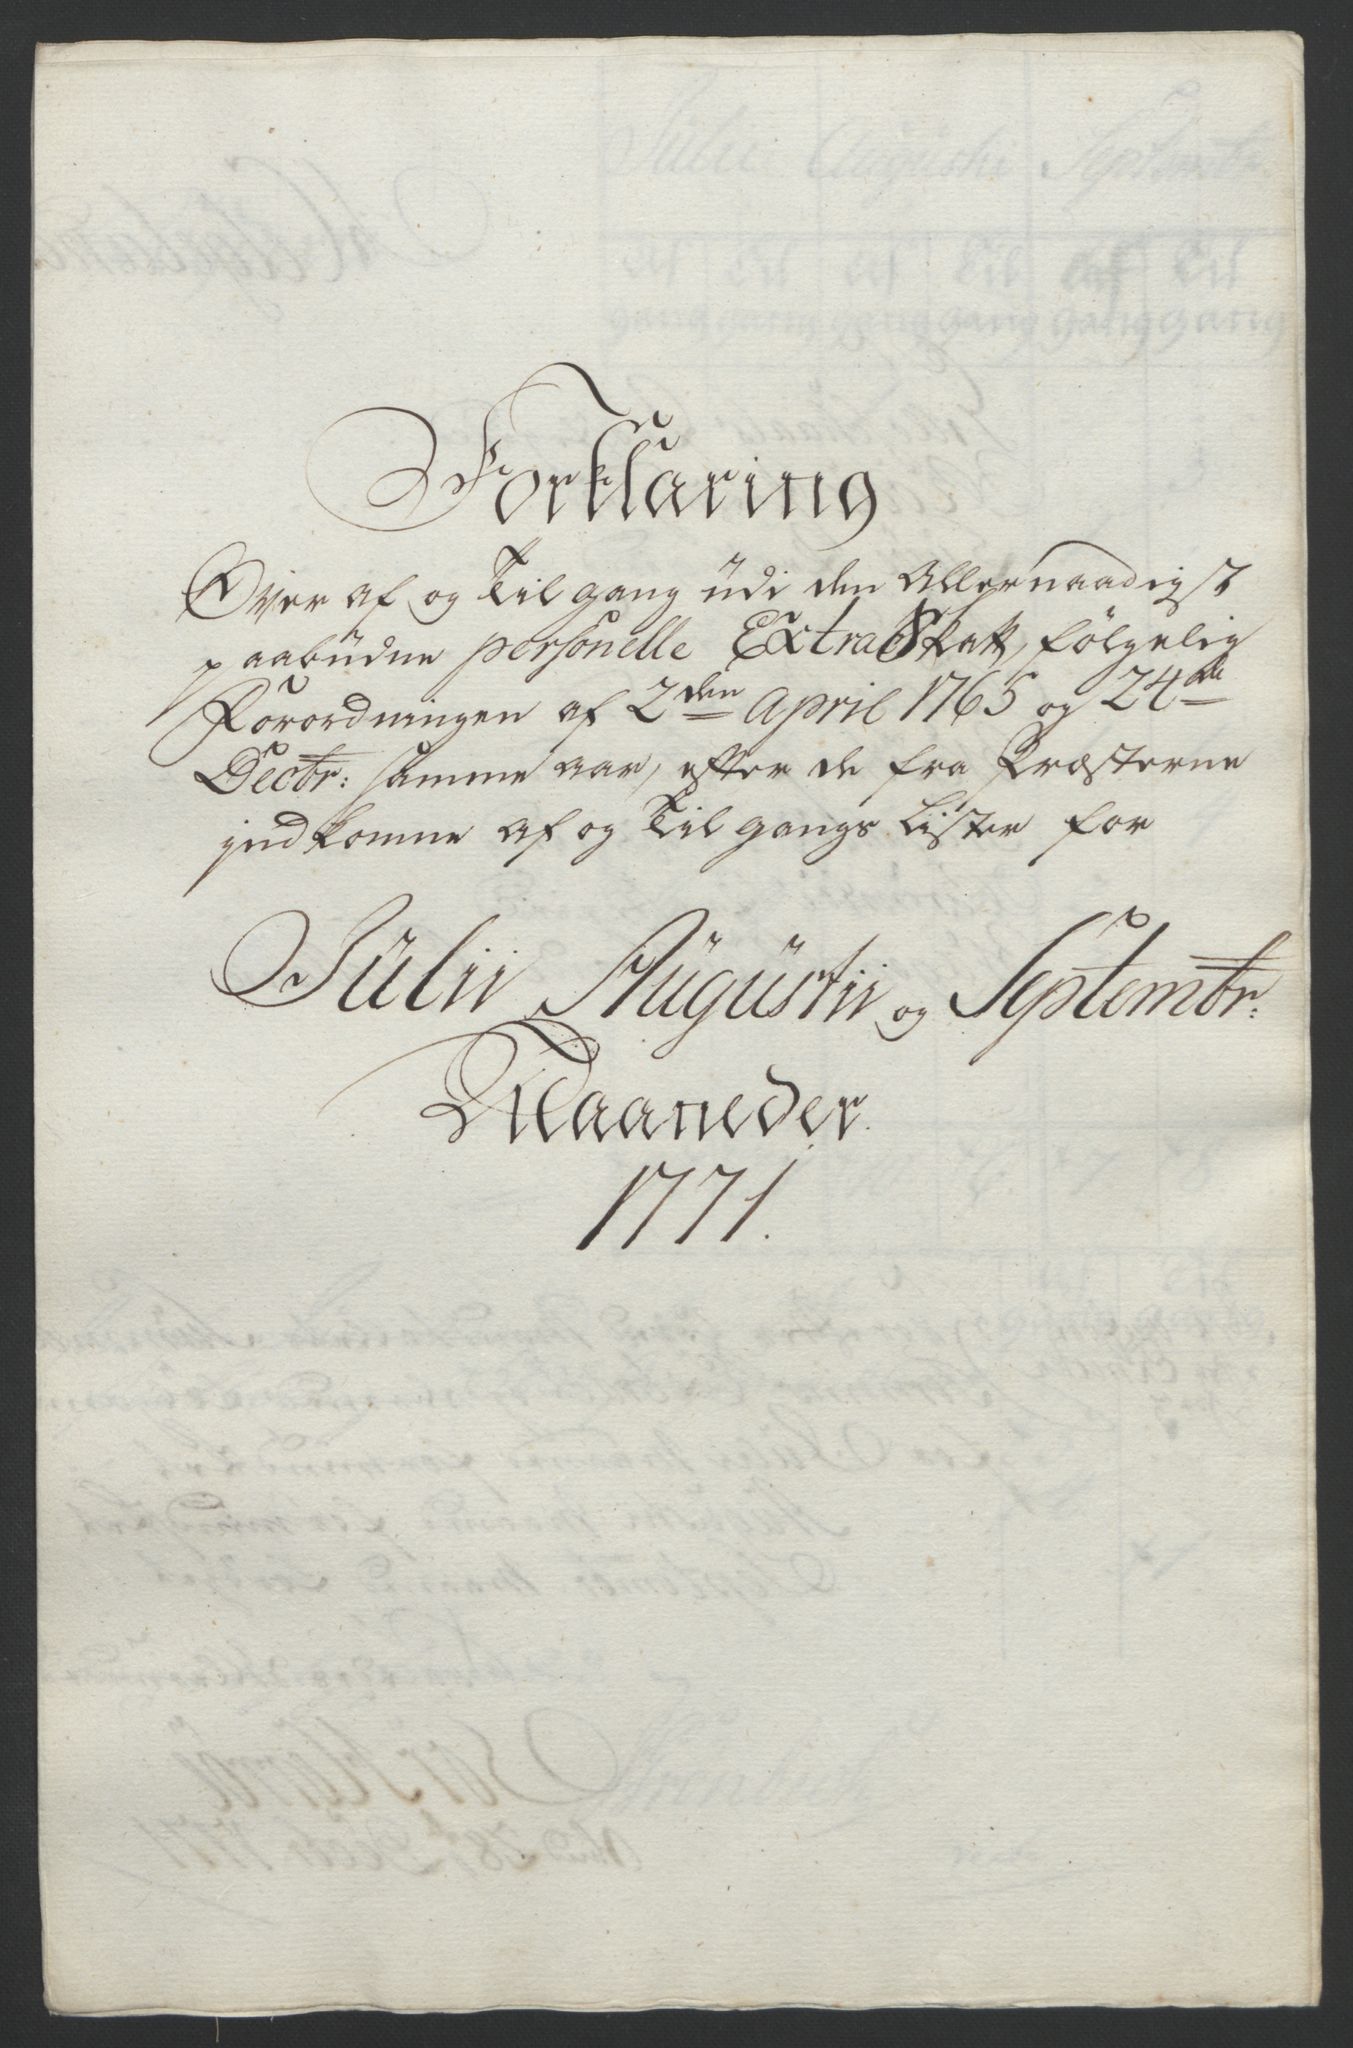 Forklaring
Over af og Til gang üdi den Allernaadigst
paabüdne personelle Extra Skatt, følgelig
Forordningen af 2den April 1765 og 24de
Decbr: samme aar, efter de fra Præsterne
jndkomne af og Til gangs Lister for
Jülii Augüstii og Septembr:
Maaneder
1771.